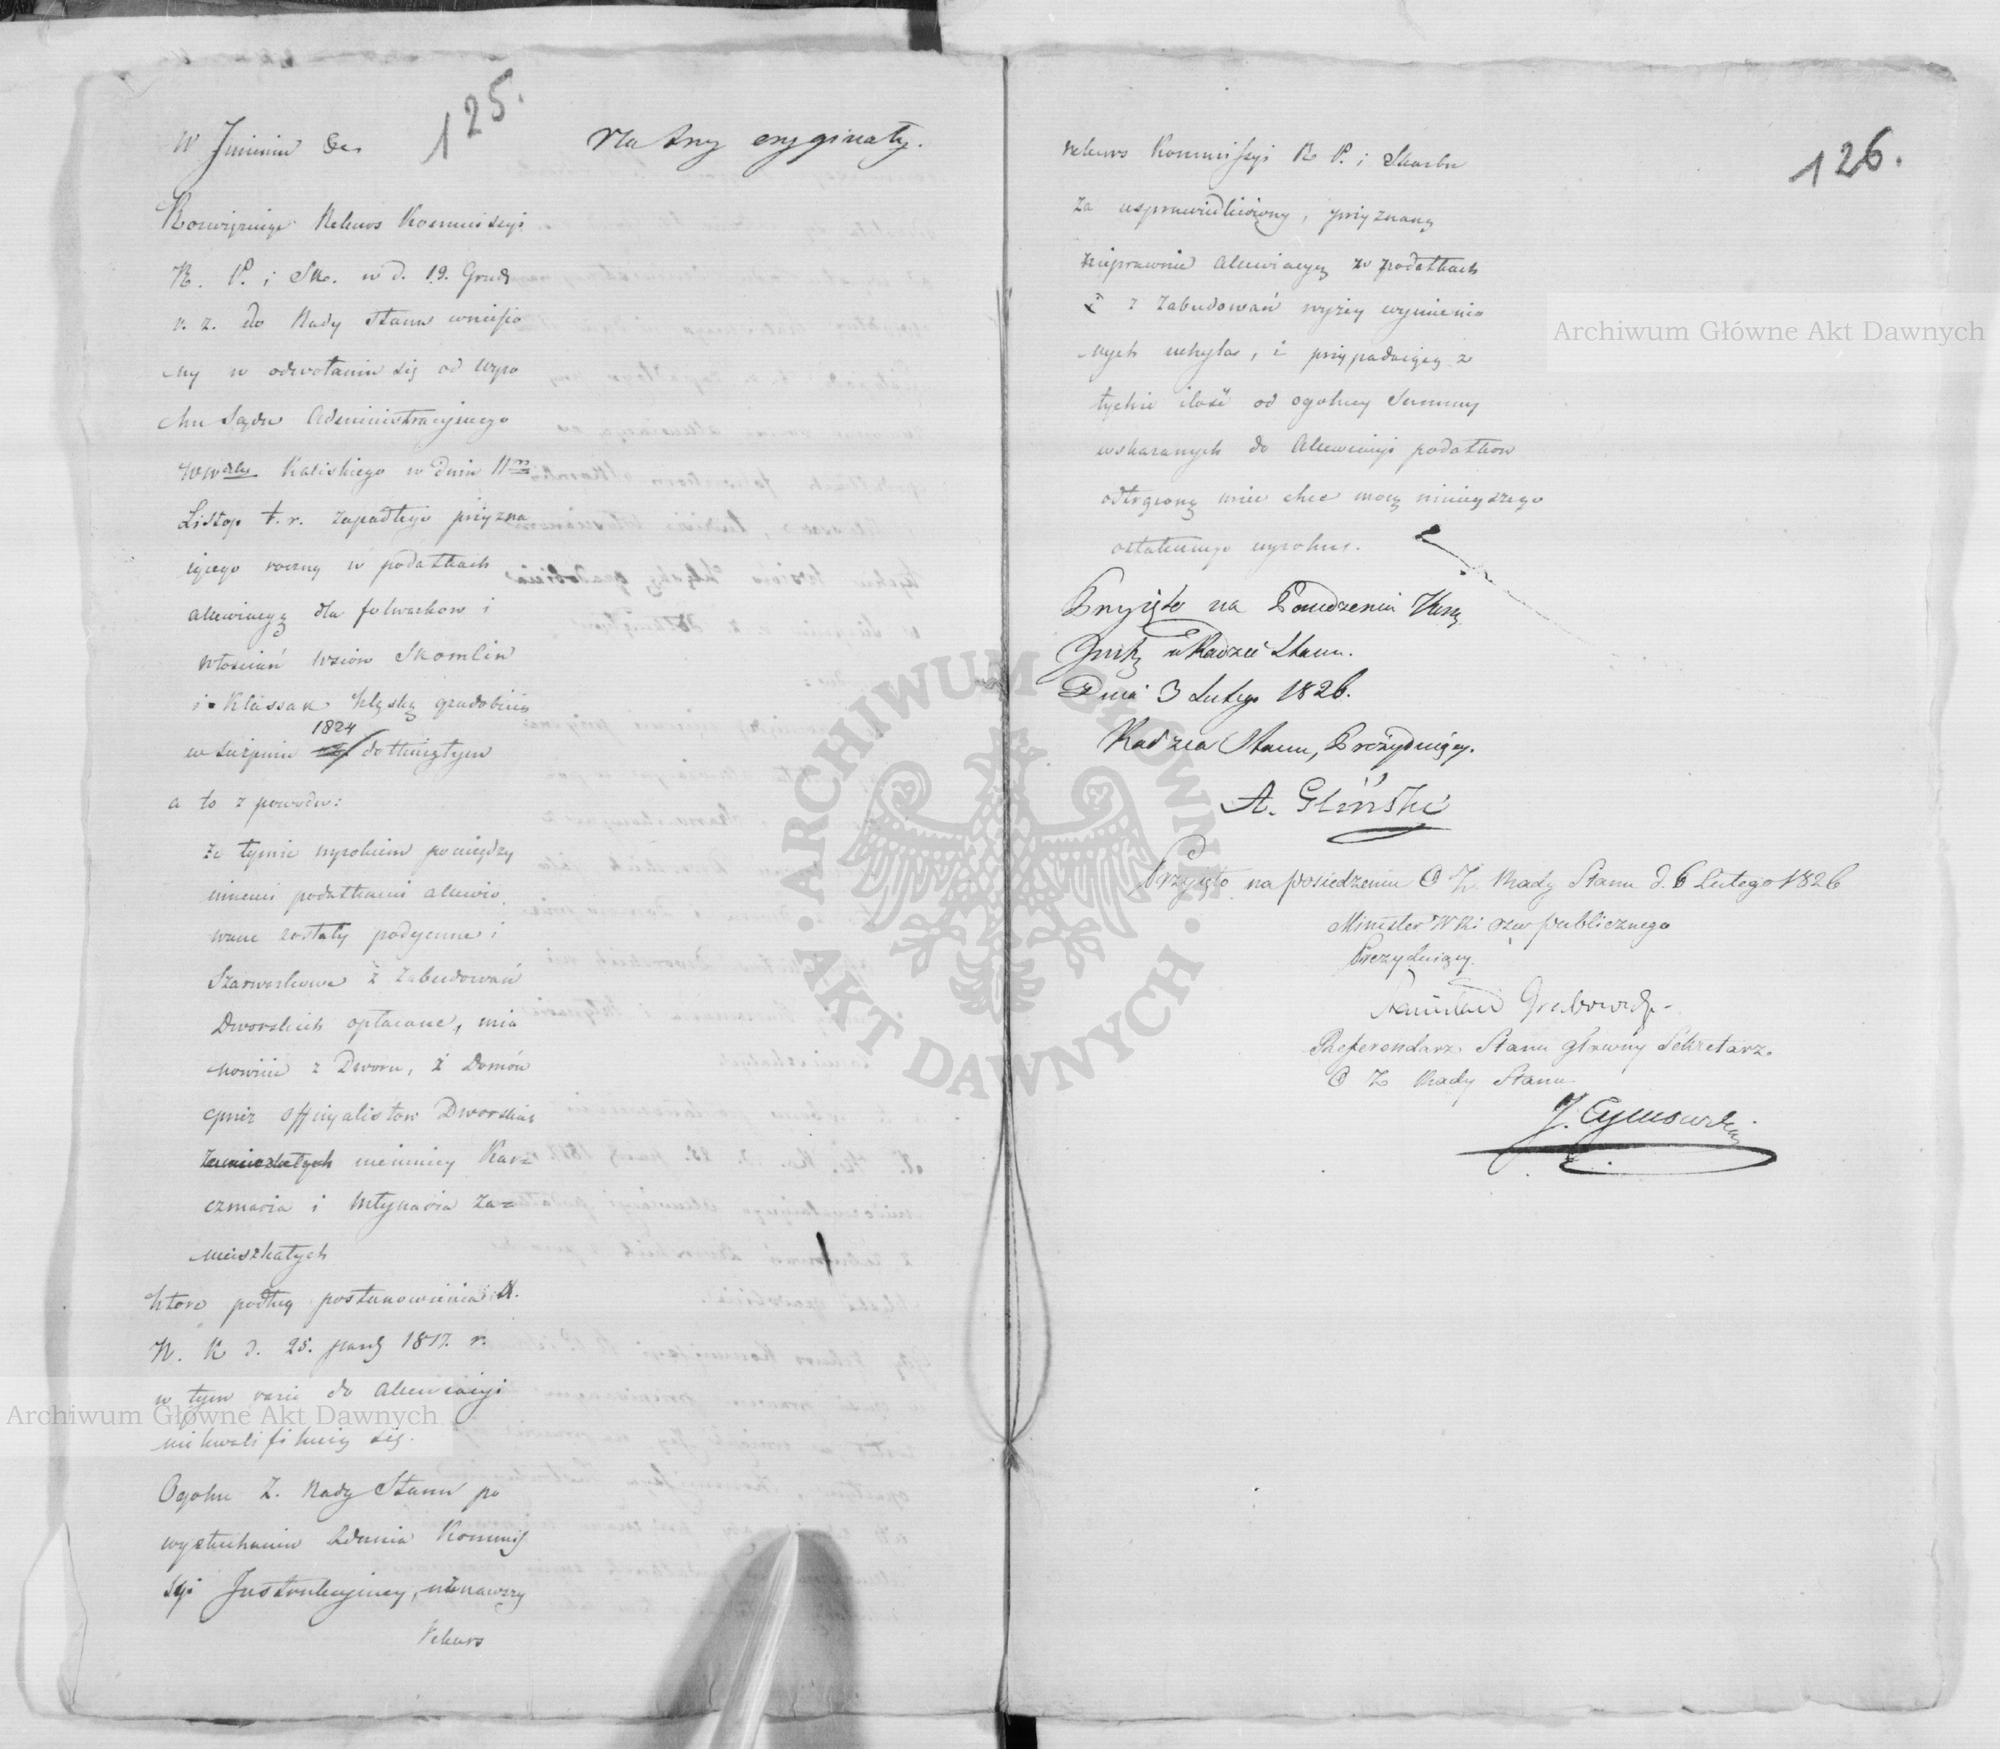 125.
W Jmieniu &c.
Na trzy oryginały.
Rozwiązuiąc Rekurs Kommissyi
R. P. i Sk. w d. 19. Grud
r. z. do Rady Stanu wniesio
ny w odwołaniu się od wyro
ku Sądu Administracyjnego
Wwdztwa Kaliskiego w dniu 11m
Listop t. r. zapadłego przyzna
iącego roczną w podatkach
alewiacyą dla folwarkow i
włościan wsiów Skomlin
i Klassak klęską gradobicia
w sierpniu 1824 dotkniętym
a to z powodu:
że tymże wyrokiem pomiędzy
innemi podatkami alewio
wane zostały podymne i
Szarwarkowe z zabudowań
Dworskich opłacane, mia
nowicie z Dworu, z Domów
przez officyalistow Dworskich
zamieszkałych niemniey Kar=
czmarza i Młynarza za=
mieszkałych
które podług postanowienia X.
N. K d. 25. paźd 1817. r.
w tym razie do alewiacyi
niekwalifikuią się.
Ogolne Z. Rady Stanu po
wysłuchaniu Zdania Kommis
syi Instrukcyiney, uznawszy
rekurs
126.
rekurs Kommissyi R P. i Skarbu
za usprawiedliwiony, przyznaną
nieprawnie alewiacyą w podatkach
z zabudowań wyżey wymienio
nych uchyla, i przypadaiącą z
tychże ilość od ogolney Summy
wskazanych do Alewiacyi podatkow
odtrąconą mieć chce mocą ninieyszego
ostatecznego wyroku.
Przyięto na Posiedzeniu
w Radzie Stanu.
Dnia 3 Lutego 1826.
Radzca Stanu, Prezyduiący.
A. Gliński
Przyięto na posiedzeniu O Z. Rady Stanu d. 6 Lutego 1826
Minister W R i Ośw publicznego
Prezyduiący.
Stanisław Grabowski
Referendarz Stanu główny Sekretarz
O Z Rady Stanu
J. Tymowski
Archiwum Główne Akt Dawnych
Archiwum Główne Akt Dawnych
ARCHIWUM GŁÓWNE AKT DAWNYCH